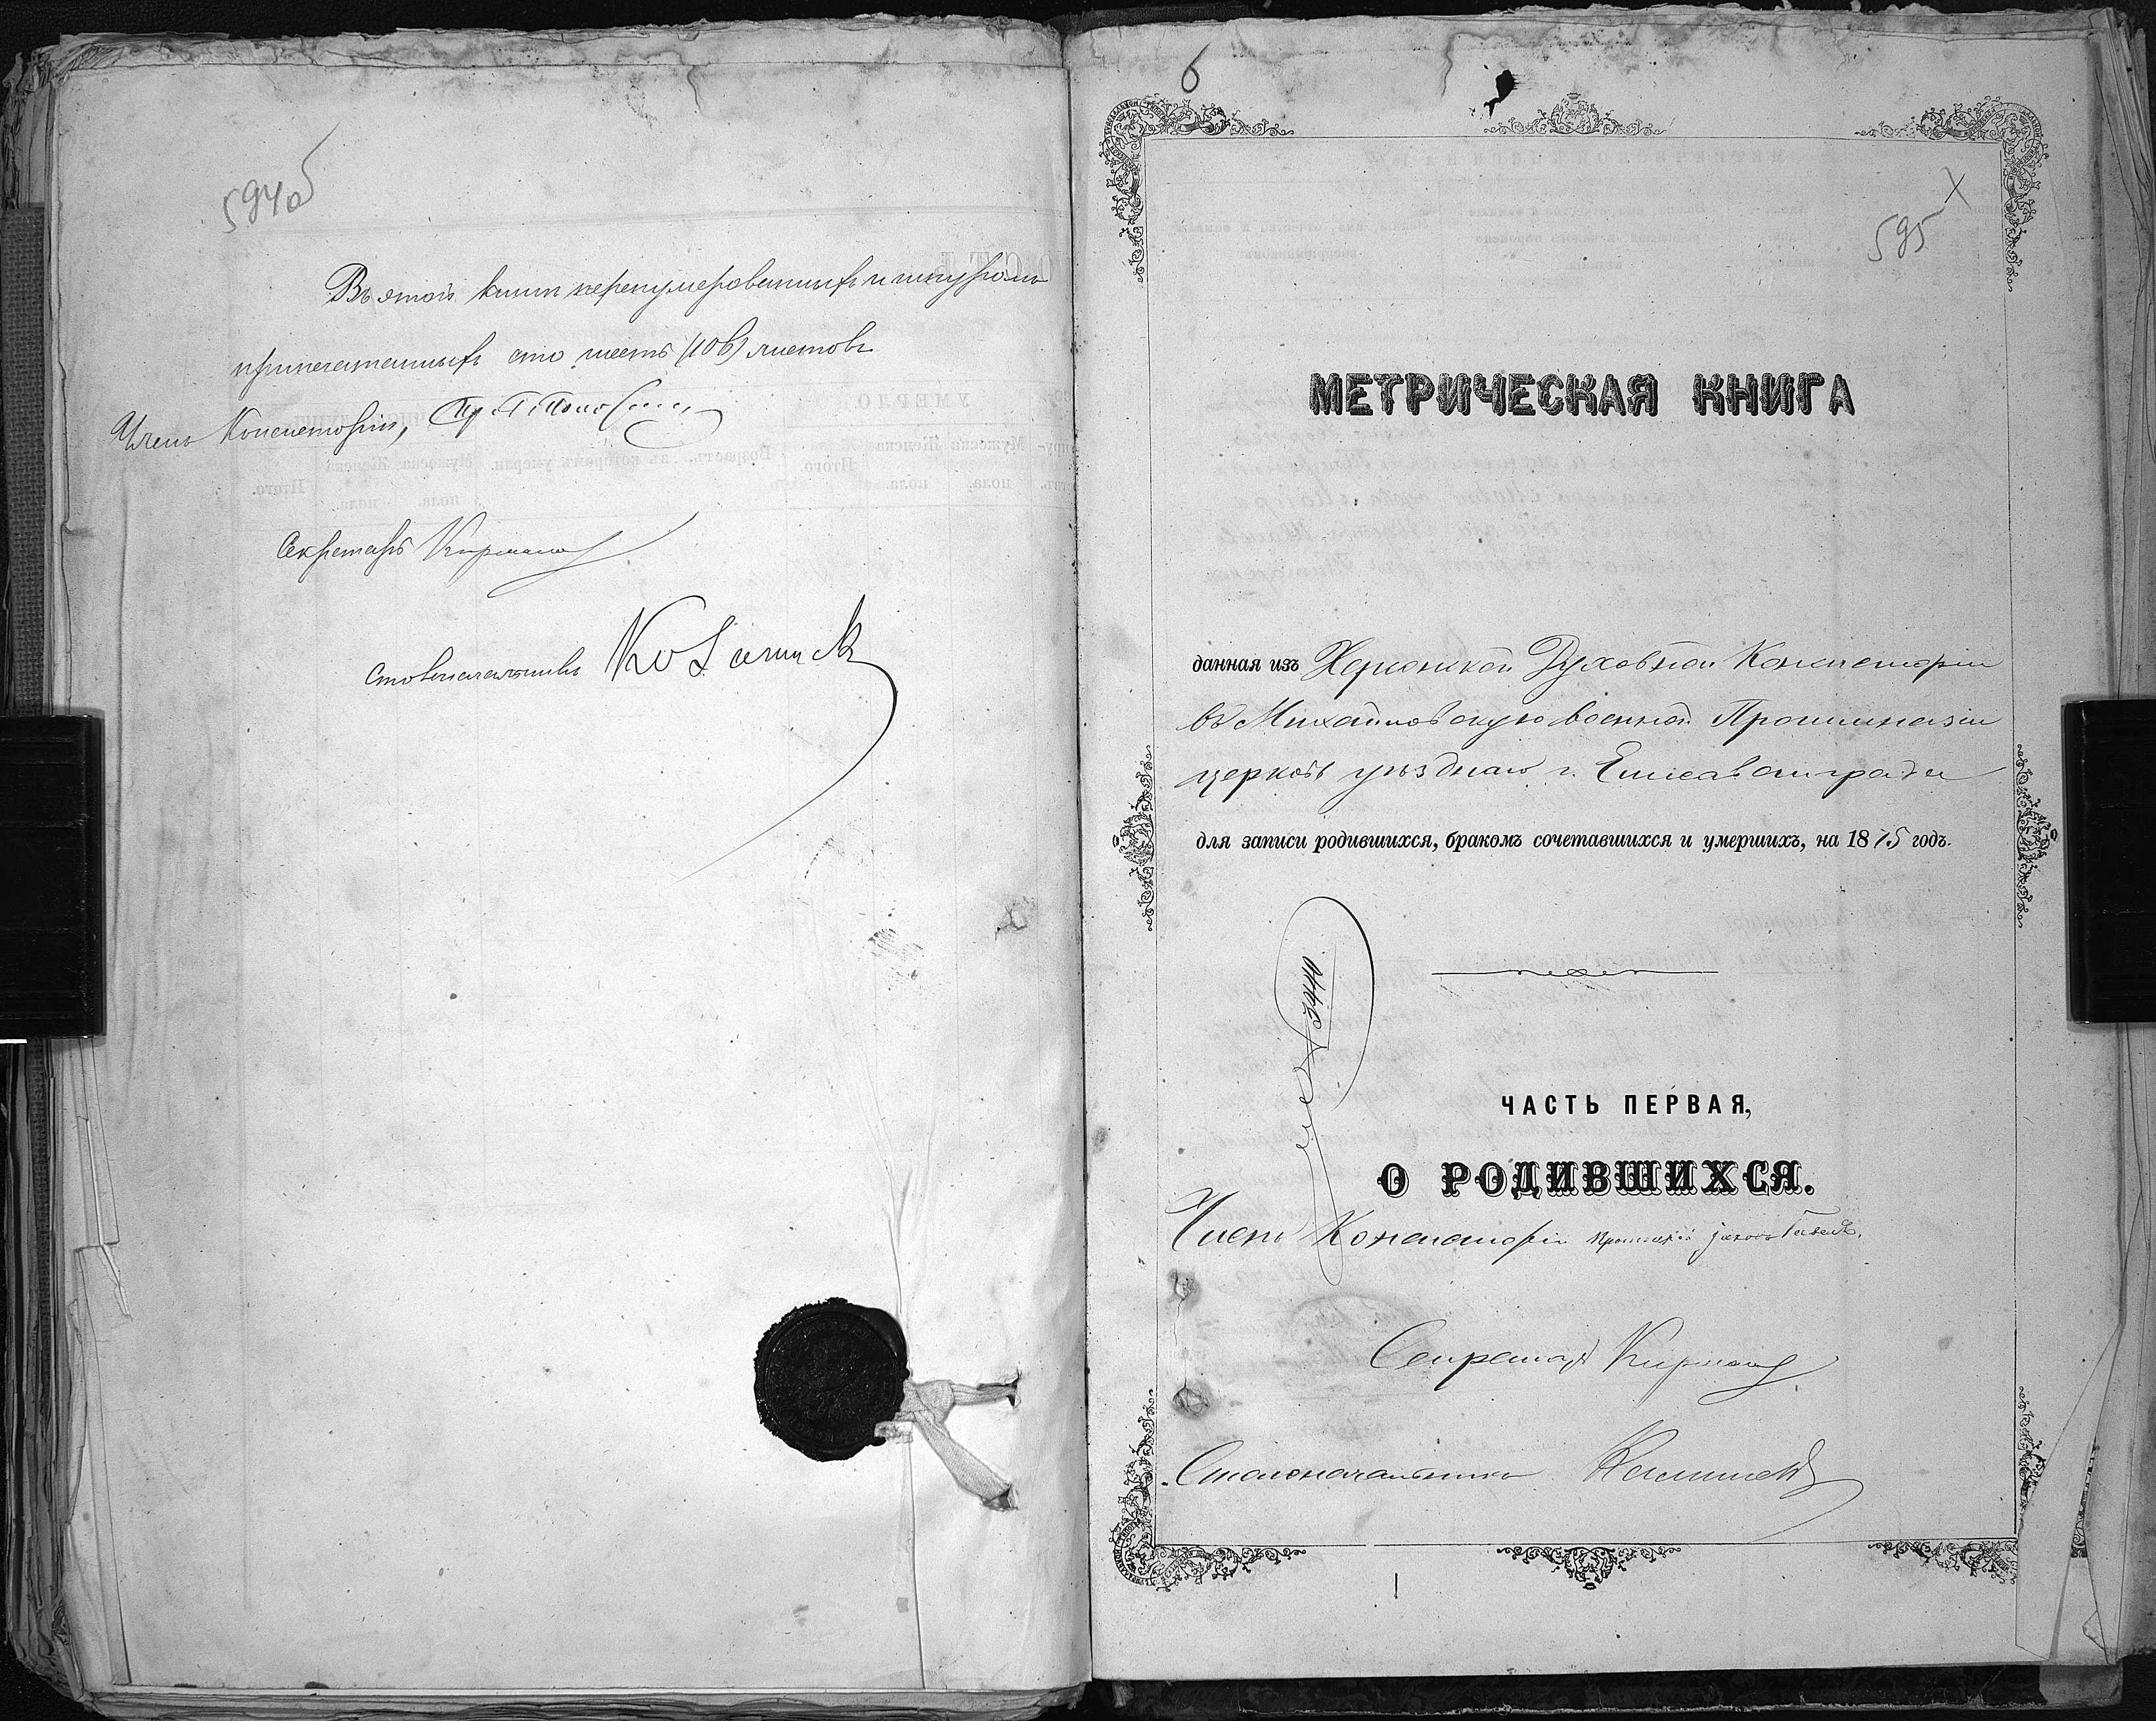 594об
Въ этой книгѣ перенумерованныхъ и шнуромъ
припечатанныхъ сто шесть (106) листовъ
Членъ Консисторіи,
Секретарь
Столоначальникъ
6
595
X
МЕТРИЧЕСКАЯ КНИГА
данная изъ Херсонской Духовной Консисторіи
въ Михайловскую военной Прогимназіи
церковь уѣзднаго г. Елисаветграда
для записи родившихся, бракомъ сочетавшихся и умершихъ, на 1875 годъ.
ЧАСТЬ ПЕРВАЯ,
О РОДИВШИХСЯ.
Членъ Консисторіи Протоіерей
Секретарь
Столоначальникъ